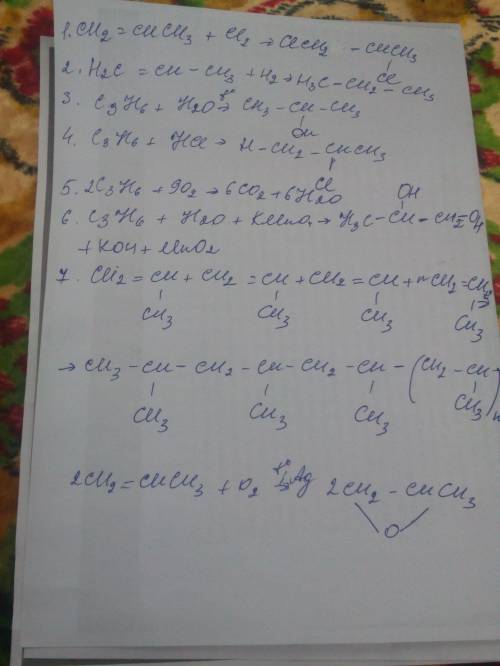 1. CH2=CHCH3 + Cl2 → ClCH2 - CHCH3
Cl
2. H2C = CH - CH3 + H2 → H3C - CH2 - CH3
3. C3H6 + H2O →t° CH3 - CH - CH3
OH
4. C3H6 + HCl → H - CH2 - CHCH3
Cl
5. 2C3H6 + 9O2 → 6CO2 + 6H2O
OH
6. C3H6 + H2O + KMnO4 → H3C - CH - CH2 - OH
+ KOH + MnO2
7. CH2 = CH + CH2 = CH + CH2 = CH + nCH2 = CH →
CH3 CH3 CH3 CH3
→ CH3 - CH - CH2 - CH - CH2 - CH - (CH2 - CH)n
CH3 CH3 CH3 CH3
2CH2 = CHCH3 + O2 →t° Ag 2CH2 - CHCH3
O